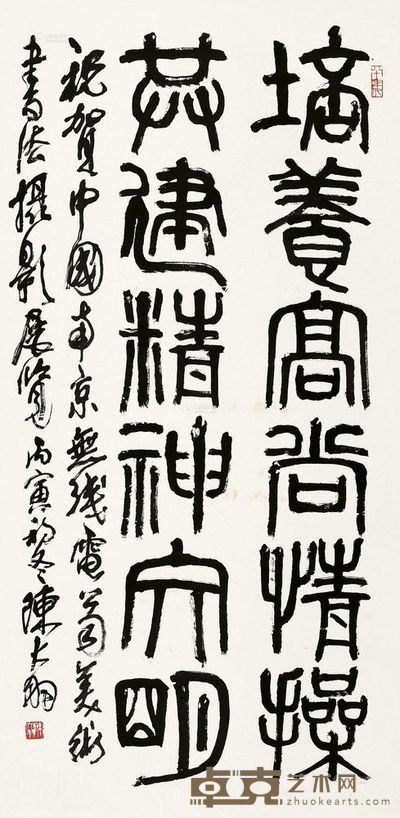 培養高尚情操
共建精神文明
祝賀中國南京無綫電公司美術
書法攝影展覽丙寅初冬陳大羽
卓克艺术网
zhuokearts.com